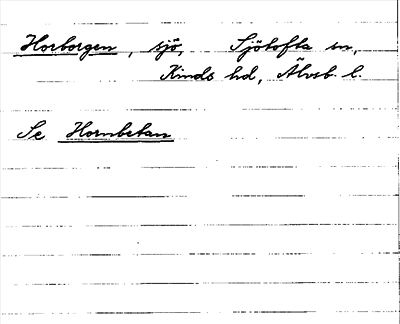 Horborgen, sjö, Sjötofta sn,
Kinds hd, Älvsb. l.
Se Hornbetan